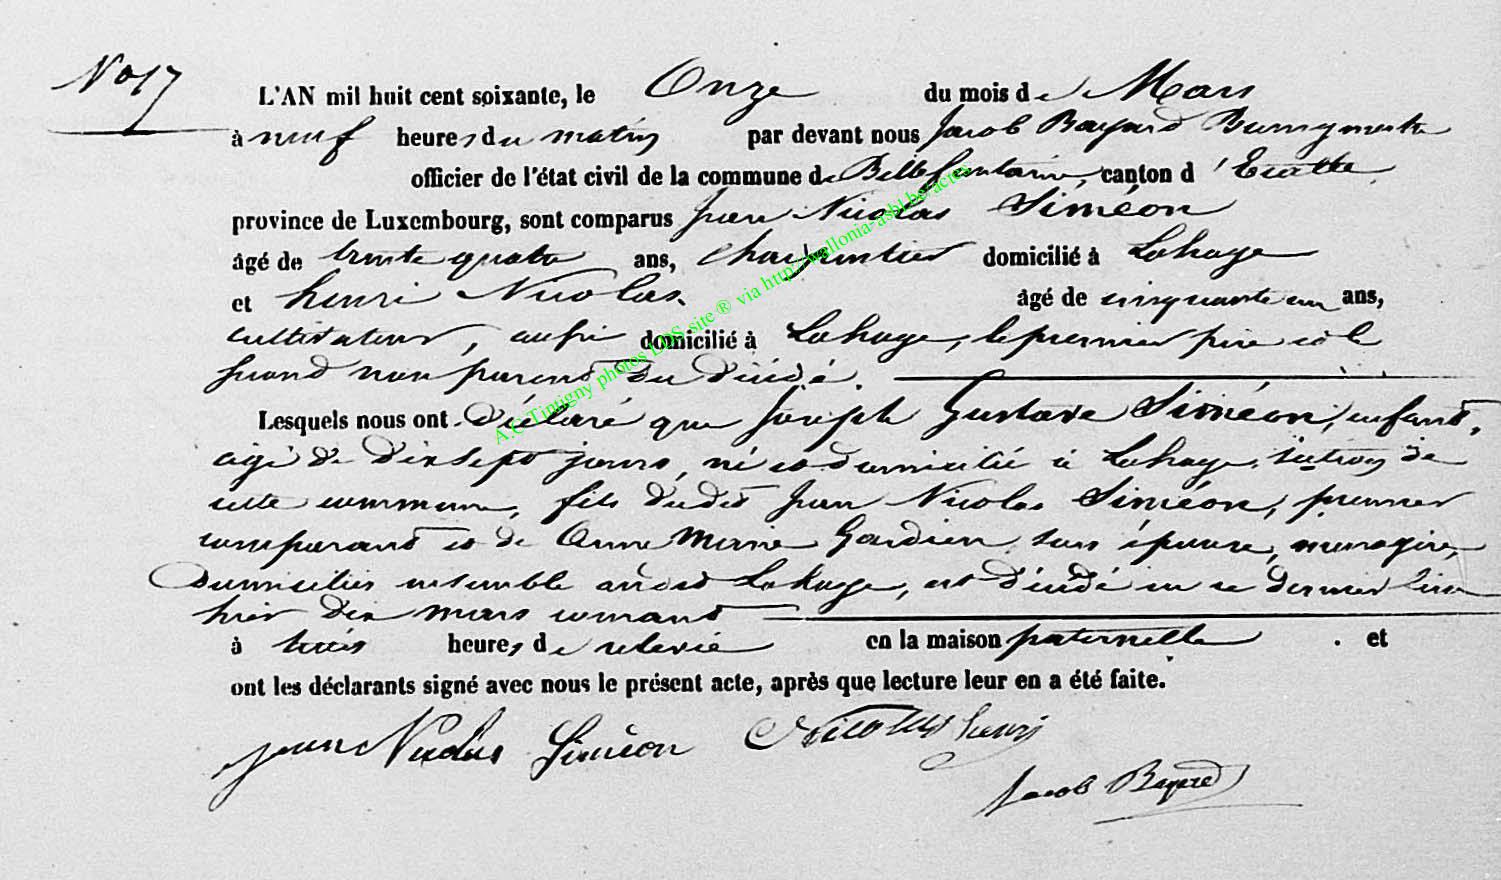 N° 17
L'AN mil huit cent soixante, le Onze du mois de Mars
à neuf heures du matin par devant nous Jacob Bayard Bourgmestre
officier de l'état civil de la commune de Bellefontaine, canton d'Etalle
province de Luxembourg, sont comparus Jean Nicolas Siméon
âgé de trente quatre ans, charpentier domicilié à Lahage
et henri Nicolas. âgé de cinquante un ans,
cultivateur, aussi domicilié à Lahage, le premier père et le
second non parent du décédé.
Lesquels nous ont déclaré que Joseph Gustave Siméon, enfant,
agé de dix sept jours, né et domicilié à Lahage, section de
cette commune, fils dudit Jean Nicolas Siméon, premier
comparant et de Anne Marie Gardien son épouse, menagère,
domiciliés ensemble audit Lahage, est décédé en ce dernier lieu
hier dix mars courant
à trois heures de relevée en la maison paternelle. et
ont les déclarants signé avec nous le présent acte, après que lecture leur en a été faite.
jean Nicolas Siméon Nicolas henri
Jacob Bayard
A.C Tintigny photos LDS site ® via http://wallonia-asbl.be/actes